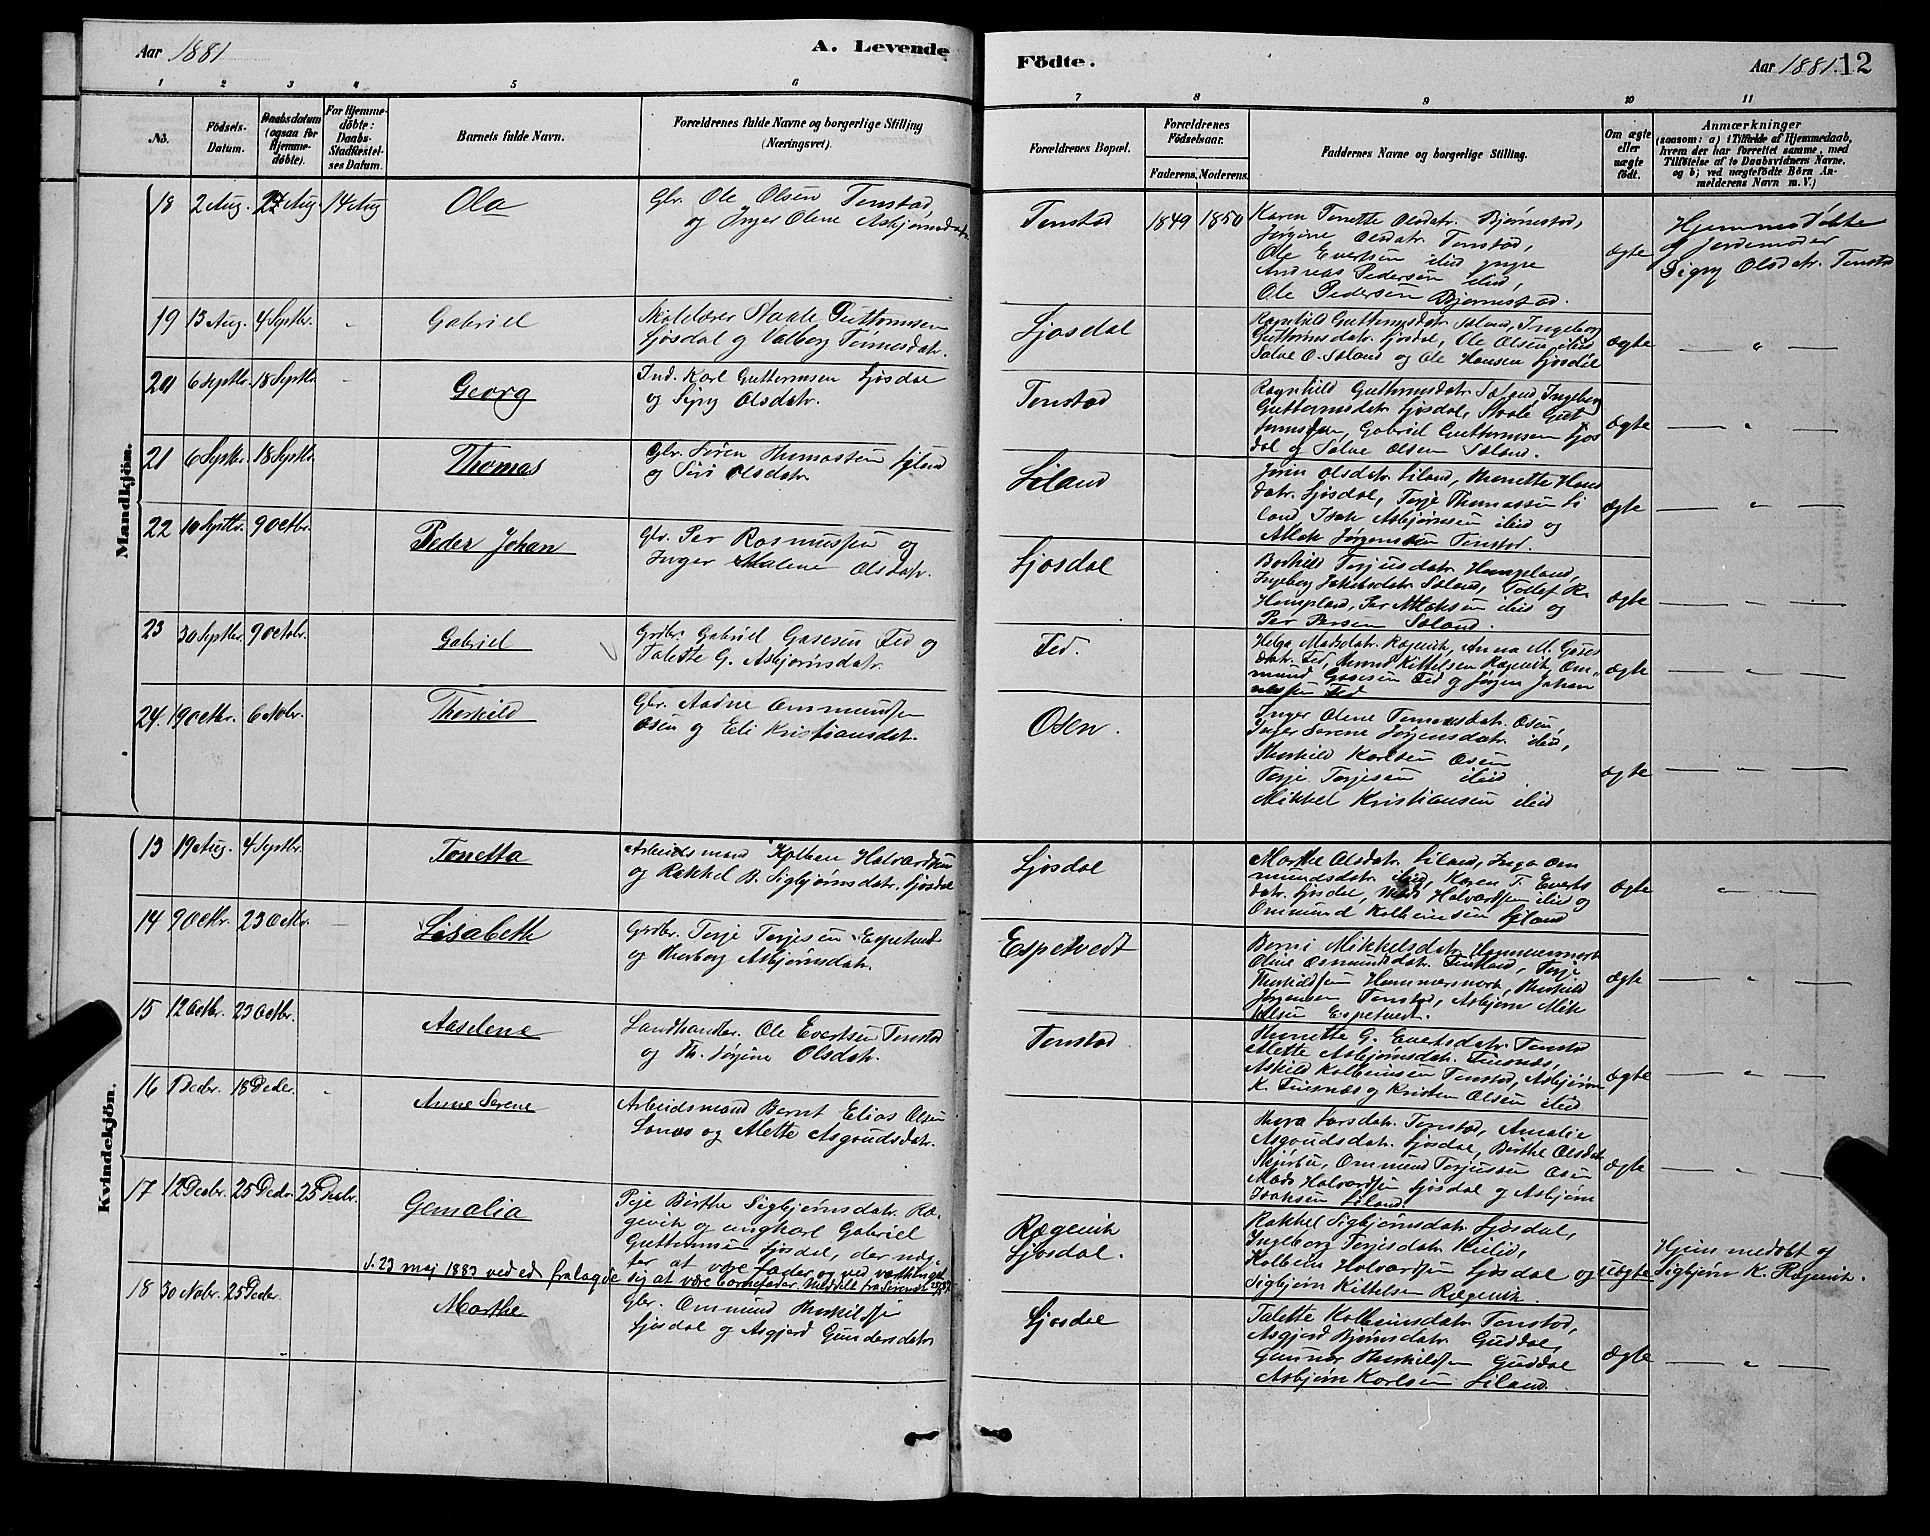 Aar 1881
A. Levende
Födte.
Aar 1881.
12
1 2 3 4 5 6 7 8 9 10 11
No.
Födsels-
Datum.
Daabsdatum
(ogsaa for
Hjemme-
döbte).
For Hjemme-
döbte:
Daabs-
Stadfæstel-
ses Datum.
Barnets fulde Navn.
Forældrenes fulde Navne og borgerlige Stilling
(Næringsvei).
Forældrenes Bopæl.
Forældrenes
Födselsaar.
Faderens. Moderens.
Faddernes Navne og borgerlige Stilling.
Om ægte
eller
uægte
födt.
Anmærkninger
(saasom: a) i Tilfælde af Hjemmedaab,
hvem der har forrettet samme, med
Tilföielse af to Daabsvidners Navne,
og b) ved uægtefödte Börn An-
melderens Navn m. V.)
Mandkjön.
18 2 Aug. 27 Aug 14 Aug
Ola
Gbr. Ole Olsen Tonstad
og Inger Olene Asbjørnsdatr.
Tonstad
1849 1850
Karen Tonette Olsdatr. Bjørnestad,
Jørgine Olsdatr. Tonstad,
Ole Evertsen ibid yngre
Andreas Pedersen ibid,
Ole Pedersen Bjørnestad.
ægte
Hjemmedøbte
af Jordemoder
Sigry Olsdatr. Tonstad
19 13 Aug. 4 Septbr. -
Gabriel
Skolelærer Staale Guttormsen
Ljosdal og Valborg Tønnesdatr.
Ljosdal
Ragnhild Guttormsdatr. Søland, Ingeborg
Guttormsdatr. Ljosdal, Ole Olsen ibid
Salve O. Søland og Ole Hansen Ljosdal
ægte
— " —
20 6 Septbr. 18 Septbr. -
Georg
Ind. Karl Guttormsen Ljosdal
og Sigry Olsdatr.
Tonstad
Ragnhild Guttormsdatr. Søland, Ingeborg
Guttormsdatr. Ljosdal, Staale Gut
tormsen, Gabriel Guttormsen Ljos
dal og Salve Olsen Søland.
ægte
— " —
21 6 Septbr. 18 Septbr.
Thomas
Gbr. Søren Thomassen Liland
og Siri Olsdatr.
Liland
Jorin Olsdatr. Liland, Thonette Hans
datr. Ljosdal, Terje Thomassen Li
land, Isak Asbjørnsen ibid og
Atlak Jørgensen Tonstad.
ægte
— " —
22 10 Septbr. 9 Octbr.
Peder Johan
Gbr. Per Rasmussen og
Inger Malene Olsdatr.
Ljosdal
Borhild Terjusdatr. Hompland,
Ingeborg Jakobsdatr. Søland, Tollef R.
Hompland, Per Atlaksen ibid og
Per Persen Søland.
ægte
— " —
23 30 Septbr. 9 Octobr.
Gabriel
Grdbr. Gabriel Gasesen Fed og
Talette G. Asbjørnsdatr.
Fed.
Helga Madsdatr. Rægevik, Anna M. Gases
datr. Fed, Amund Kittelsen Rægevik, Om-
mund Gasesen Fed og Jørgen Johan
nessen Fed
ægte
— " —
24. 19 Octbr. 6 Novbr.
Thorkild
Gbr. Aadne Ommundsen
Osen og Eli Kristiansdatr.
Osen.
Inger Olene Tønnesdatr. Osen,
Inger Serene Jørgensdatr. ibid,
Thorkild Karlsen Osen
Terje Terjesen ibid
Mikkel Kristiansen ibid
ægte
— " —
Kvindekjön.
13 19 Aug. 4 Septbr.
Tonetta
Arbeidsmand Kolben Halvardsen
og Rakkel B. Sigbjørnsdatr. Ljosdal
Ljosdal
Marthe Olsdatr. Liland, Inga Om
mundsdatr. ibid, Karen T. Everts
datr. Ljosdal, Mads Halvardsen ibid og
Ommund Kolbeinsen Liland
ægte
" —
14 9 Octbr. 23 Octbr. —
Lisabeth
Grdbr. Terje Terjesen Espetvedt
og Thorborg Asbjørnsdatr.
Espetvedt
Berni Mikkelsdatr. Hammersmark
Oline Osmundsdatr. Fintland, Terje
Thorkildsen Hammersmark, Thorkild
Jørgensen Tonstad, Asbjørn Mik
kelsen Espetvedt.
ægte
— " —
15 12 Octbr. 23 Octbr.
Aaselene
Landhandler Ole Evertsen Tonstad
og Th. Jørgine Olsdatr.
Tonstad
Thonette G. Evertsdatr. Tonstad
Alette Asbjørnsdatr. Finsnæs,
Askild Kolbeinsen Tonstad, Asbjørn
K. Finsnæs og Kristen Olsen ibid
ægte
— " —
16 1 Decbr. 18 Decbr. -
Anne Serene
Arbeidsmand Bernt Elias Olsen
Lonas og Alette Asgoudsdatr.
Thora Larsdatr. Tonstad, Amalie
Asgoudsdatr. Ljosdal, Birthe Olsdatr.
Skjerbu, Ommund Terjussen Osen
Mads Halvardsen Ljosdal og Asbjørn
Isaksen Liland.
ægte
— " —
17 12 Decbr. 25 Decbr. 25 Decbr.
Gemalia
Pige Birthe Sigbjørnsdatr. Ræ-
gevik og ungkarl Gabriel
Guttormsen Ljosdal, der neg-
ter at være fader og ved værthinget
d. 23 maj 1883 ved ed fralagde sig at være barnefader.
Rægevik
Ljosdal.
Rakkel Sigbjørnsdatr. Ljosdal,
Ingeborg Terjesdatr. Kilid,
Kolbein Halvardsen Ljosdal og
Sigbjørn Kittelsen Rægevik.
uægte
Hjemmedøbt af
Sigbjørn K. Rægevik.
18 30 Novbr. 25 Decbr.
Marthe
Gbr. Ommund Thorkildsen
Ljosdal og Asgjerd Gundersdatr.
Ljosdal
Talette Kolbeinsdatr. Tonstad,
Asgjerd Bjørnsdatr. Guddal,
Gunnar Thorkildsen Guddal
Asbjørn Karlsen Liland.
ægte
— " —